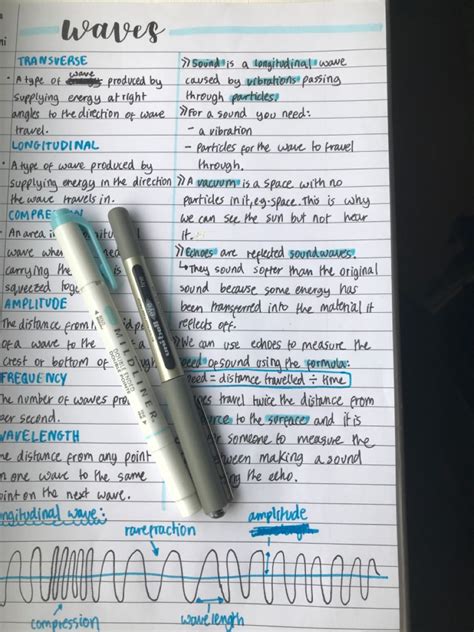 waves
TRANSVERSE
• A type of wave produced by
supplying energy at right
angles to the direction of wave
travel.
LONGITUDINAL
• A type of wave produced by
supplying energy in the direction
the wave travels in.
COMPRESSION
• An area in
wave where
carrying the
squeezed together
AMPLITUDE
The distance from
of a wave to the
crest or bottom of
FREQUENCY
The number of waves
per second.
WAVELENGTH
The distance from any point
on one wave to the same
point on the next wave.
» Sound is a longitudinal wave
caused by vibrations passing
through particles.
» For a sound you need:
- a vibration
- particles for the wave to travel
through.
» A vacuum is a space with no
particles in it, eg-space. This is why
we can see the sun but not hear
it.
» Echoes are reflected soundwaves.
↳ They sound softer than the original
sound because some energy has
been transferred into the material it
reflects off.
» We can use echoes to measure the
speed of sound using the formula:
speed = distance travelled ÷ time
travel twice the distance from
source to the surface and it is
for someone to measure the
between making a sound
the echo.
longitudinal wave:
rarefraction
amplitude
compression
wavelength
MIDLINER
uni-ball
eye